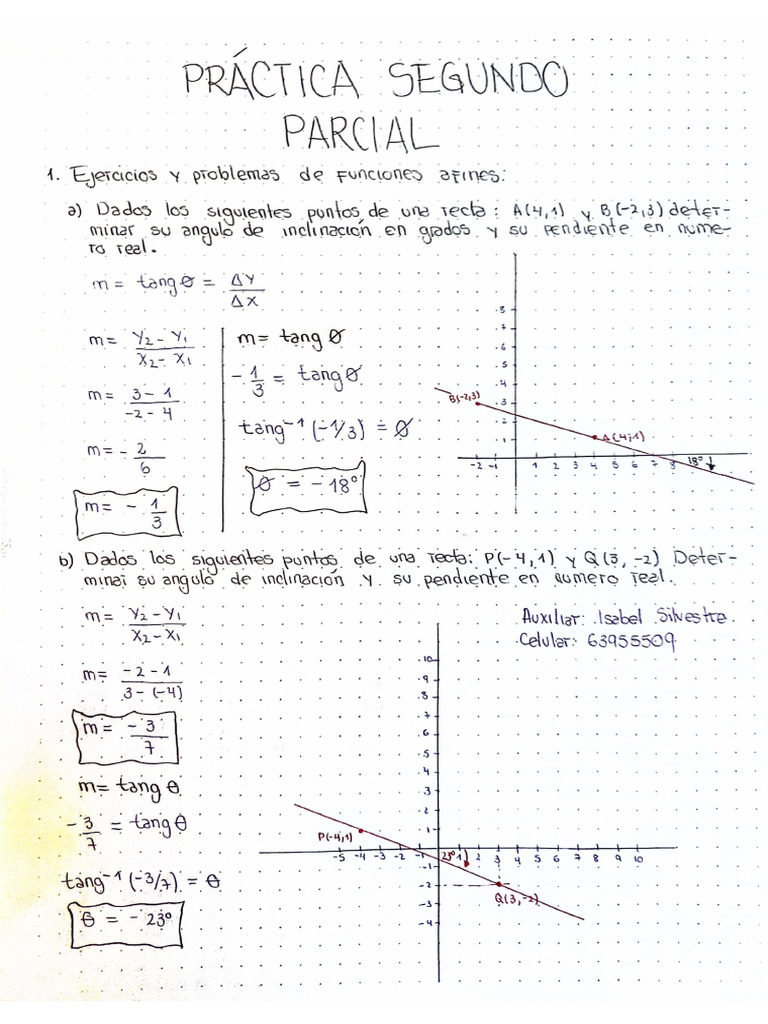 PRÁCTICA SEGUNDO
PARCIAL
1. Ejercicios y problemas de funciones afines:
a) Dados los siguientes puntos de una recta: A(4,1) y B(-2,3) deter-
minar su angulo de inclinación en grados y su pendiente en nume-
ro real.
m = tang θ = ΔY/ΔX
m = Y₂ - Y₁ / X₂ - X₁
m = 3 - 1 / -2 - 4
m = - 2/6
m = - 1/3
m = tang θ
- 1/3 = tang θ
tang⁻¹ (-1/3) = θ
θ = - 18°
8
7
6
5
4
3
2
1
-2 -1 1 2 3 4 5 6 7 8
B(-2,3)
A(4,1)
18°
b) Dados los siguientes puntos de una recta: P(-4,1) y Q(3,-2) Deter-
minar su angulo de inclinación y su pendiente en numero real.
Auxiliar: Isabel Silvestre
Celular: 63955509
m = Y₂ - Y₁ / X₂ - X₁
m = -2 - 1 / 3 - (-4)
m = - 3/7
m = tang θ
- 3/7 = tang θ
tang⁻¹ (-3/7) = θ
θ = - 23°
10
9
8
7
6
5
4
3
2
1
-5 -4 -3 -2 -1 1 2 3 4 5 6 7 8 9 10
-1
-2
-3
-4
P(-4,1)
23°
Q(3,-2)